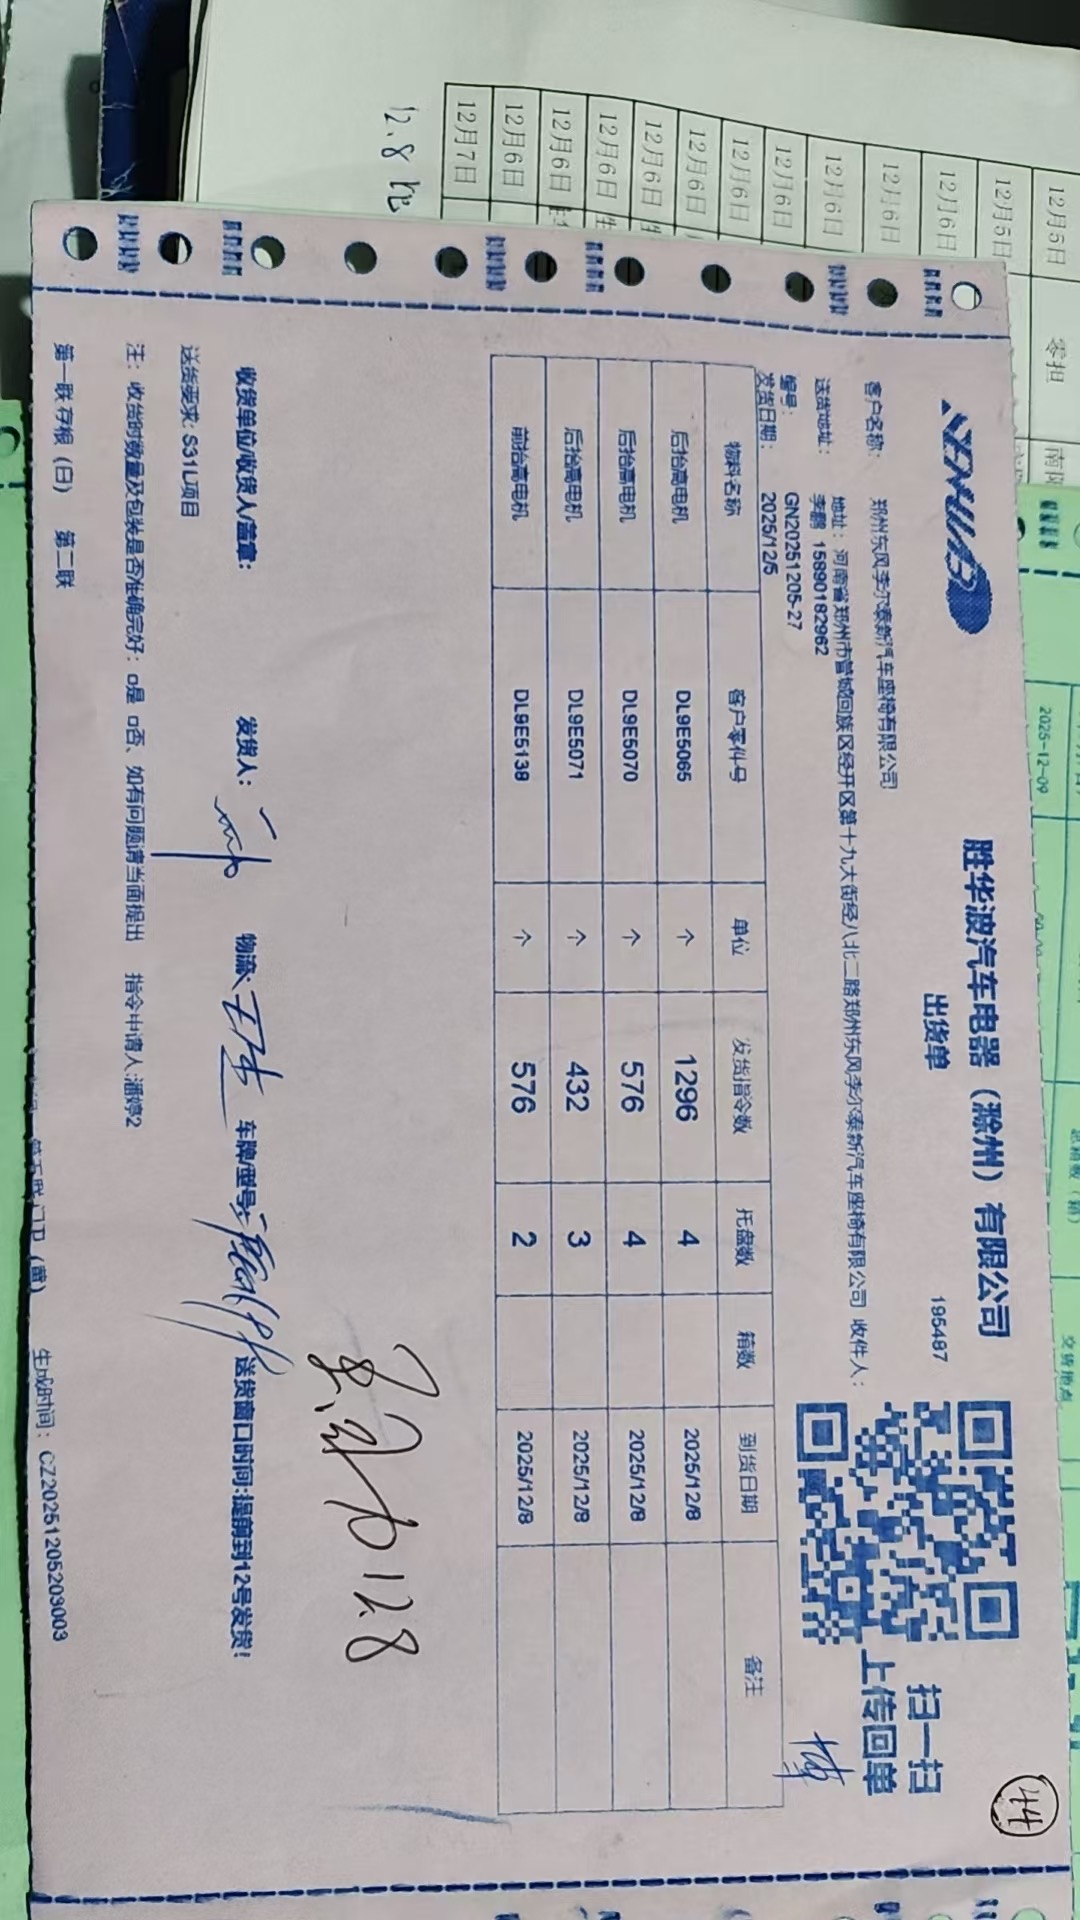 SHENGHUABO
胜华波汽车电器（滁州）有限公司
出货单
195487
扫一扫
上传回单
44
客户名称： 郑州东风李尔泰新汽车座椅有限公司
送货地址： 地址：河南省郑州市管城回族区经开区第十九大街经八北二路郑州东风李尔泰新汽车座椅有限公司 收件人：
李鹏 15890182962
编号： GN20251205-27
发货日期： 2025/12/5
物料名称 客户零件号 单位 发货指令数 托盘数 箱数 到货日期 备注
后抬高电机 DL9E5065 个 1296 4 2025/12/8
后抬高电机 DL9E5070 个 576 4 2025/12/8
后抬高电机 DL9E5071 个 432 3 2025/12/8
前抬高电机 DL9E5138 个 576 2 2025/12/8
12.8
收货单位/收货人/盖章： 发货人： 物流: 车牌/型号: 送货窗口时间:提前到12号发货!
送货要求: S31L项目
注：收货时数量及包装是否准确完好：□是 □否、如有问题请当面提出 指令申请人:潘婷2
第一联存根（白） 第二联
生成时间：CZ20251205203003
12月5日 零担
12月5日
12月6日
12月6日
12月6日
12月6日
12月6日
12月6日
12月6日
12月6日
12月6日
12月6日
12月7日
12.8
2025-12-09
总箱数（箱）
交货地点